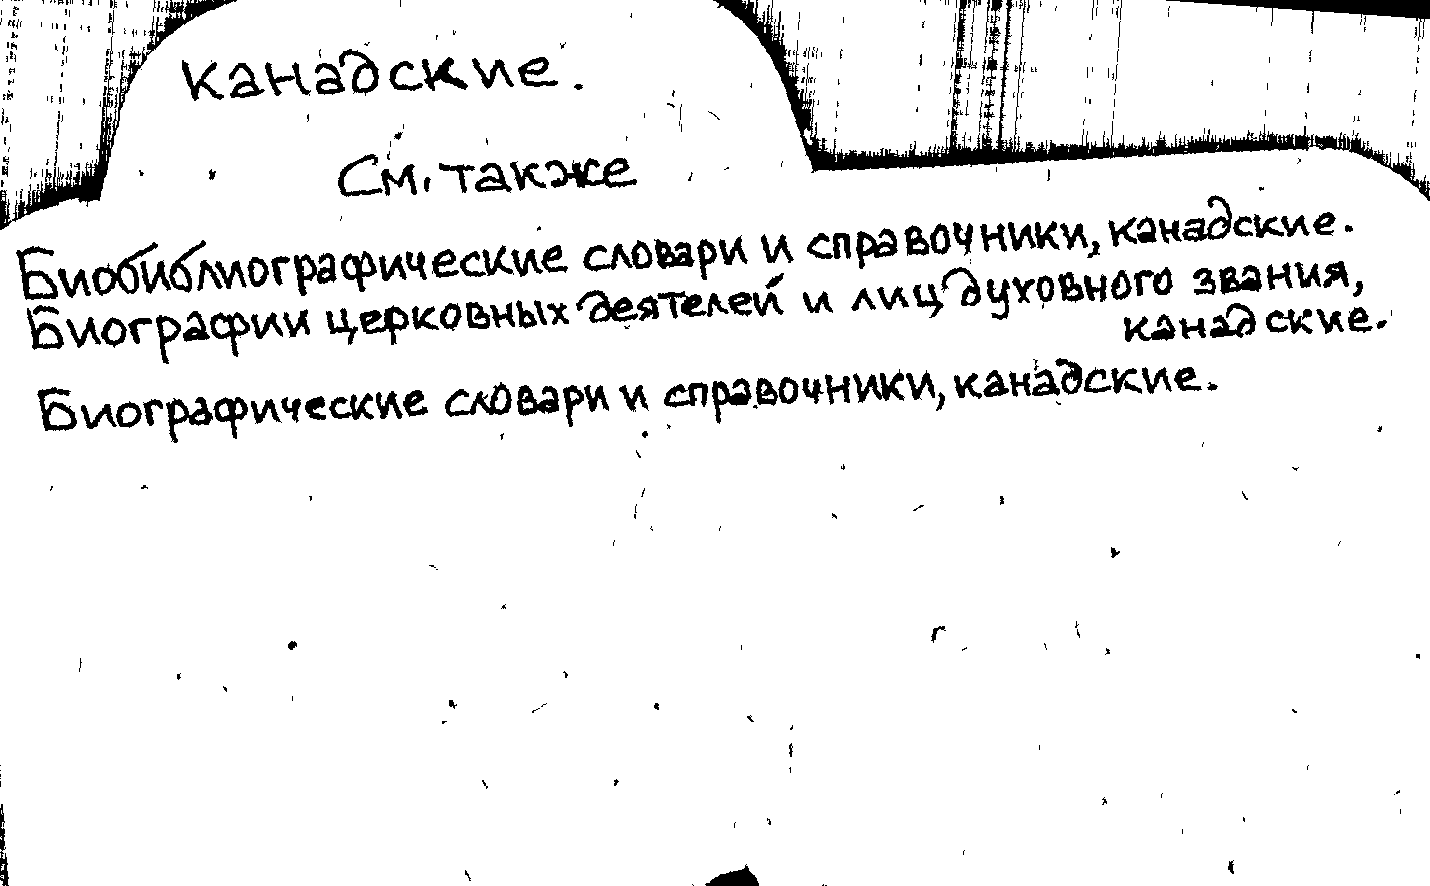 канадские.
См. также
Биобиблиографические словари и справочники, канадские.
Биографии церковных деятелей и лиц духовного звания,
канадские.
Биографические словари и справочники, канадские.